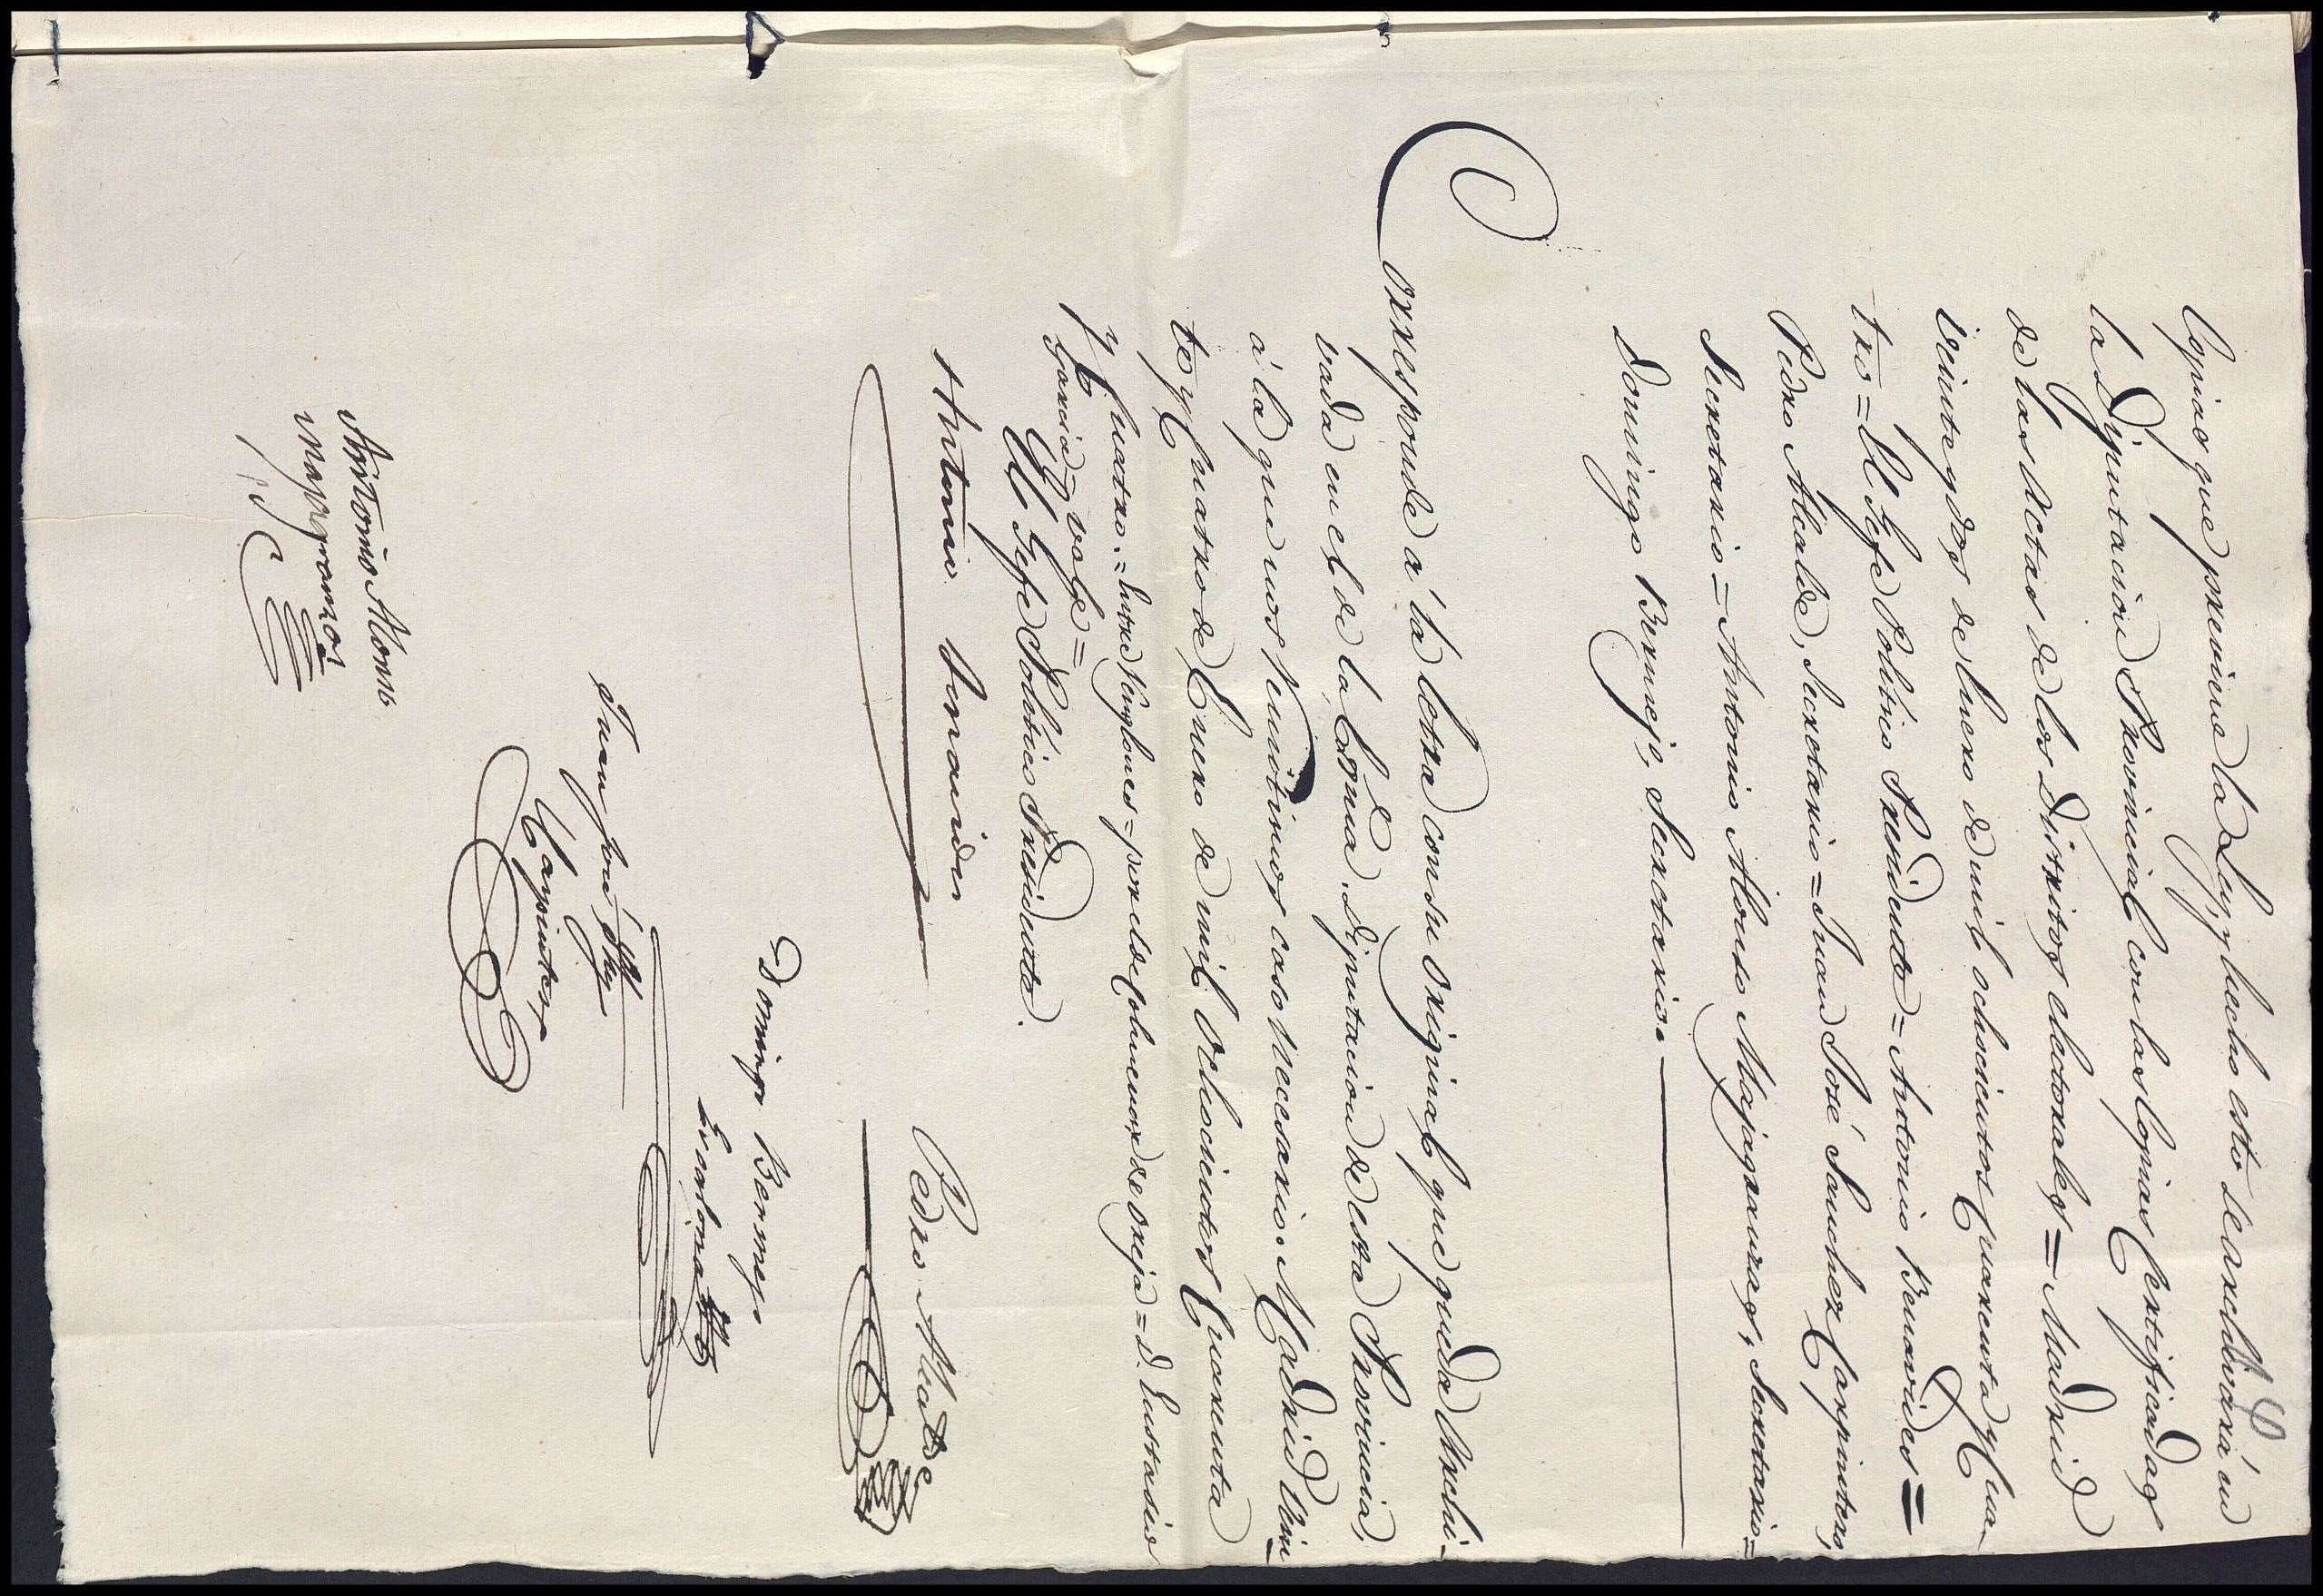 Copias que previene la Ley, y hecho esto se archivará en
la Diputacion Provincial con las Copias Certificadas
de las Actas de los Distritos electorales = Madrid
veinte y dos de Enero de mil ochocientos Cuarenta y Cua-
tro = El Gefe Politico Presidente = Antonio Benavides =
Pedro Alcalde, Secretario = Juan José Sanchez Carpintero,
Secretario = Antonio Alonso Majagranzas, Secretario =
Domingo Bermejo, Secretario.
Corresponde á la letra con su original que queda Archi-
vada en el de la Exma. Diputacion de esta Provincia,
á la que nos remitimos caso necesario. Madrid Vein-
te y Cuatro de Enero de mil Ochocientos Cuarenta
y Cuatro. = Entre Renglones = por el de Colmenar de Oreja = D. Eustasio
Garcia = vale =
El Gefe Politico Presidente.
Antonio Benavides
Pedro Alcalde
Domingo Bermejo
Juan José Shz
Carpintero
Antonio Alonso
Majagranzas